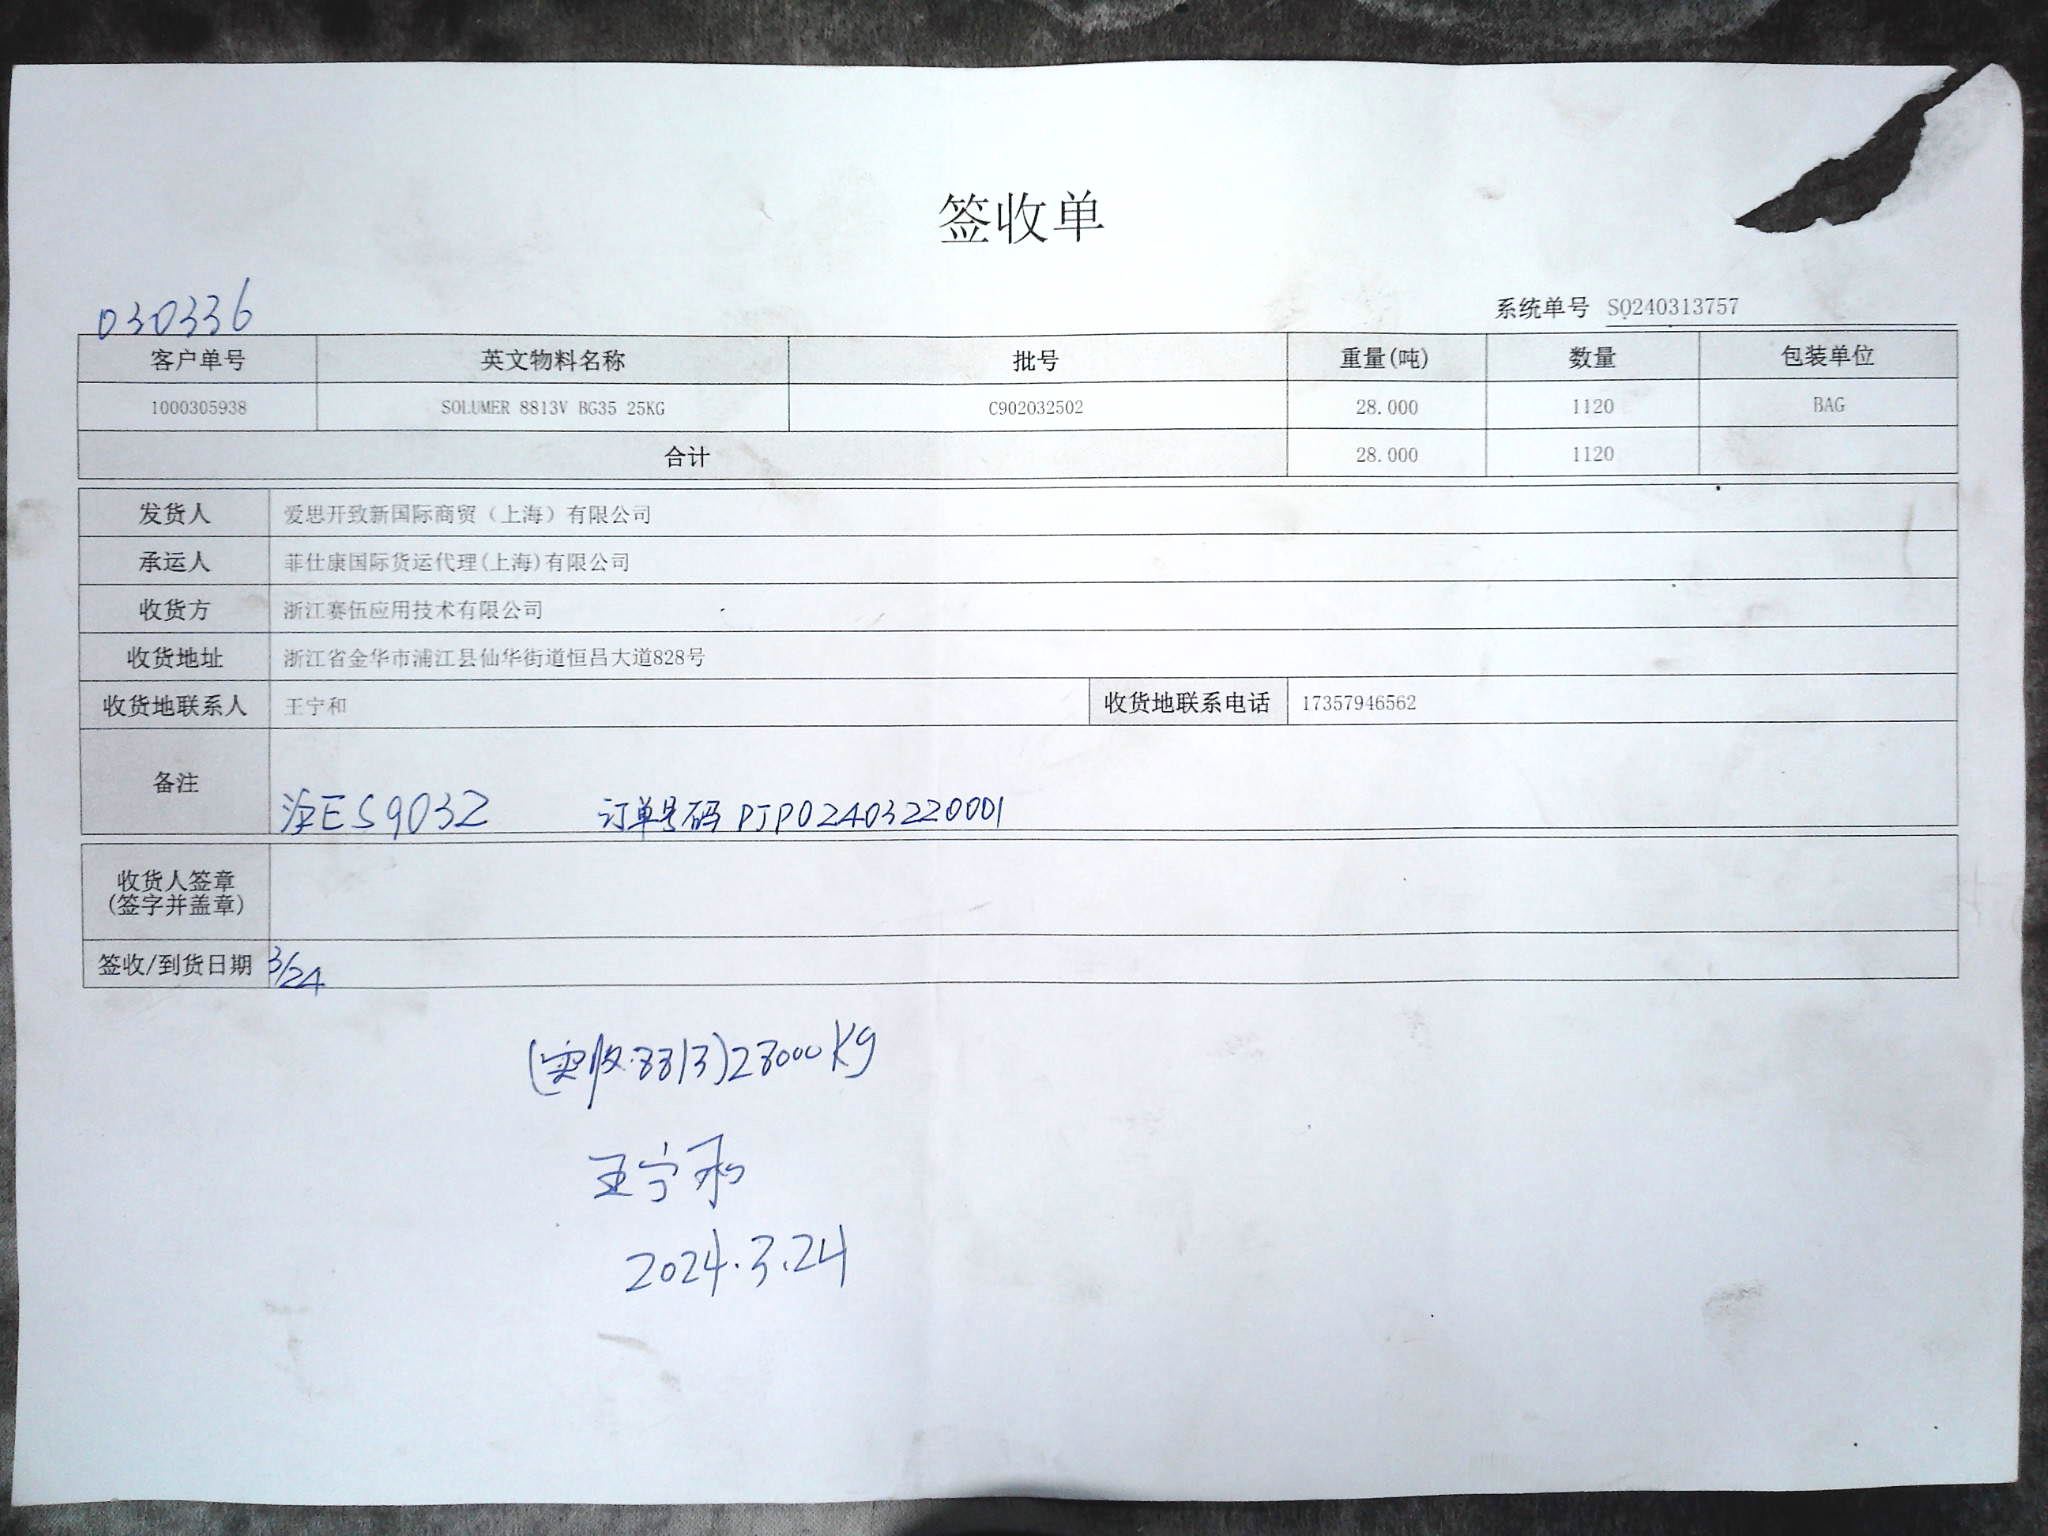 签收单
030336
系统单号 SO240313757
客户单号 英文物料名称 批号 重量(吨) 数量 包装单位
1000305938 SOLUMER 8813V BG35 25KG C902032502 28.000 1120 BAG
合计 28.000 1120
发货人 爱思开致新国际商贸（上海）有限公司
承运人 菲仕康国际货运代理(上海)有限公司
收货方 浙江赛伍应用技术有限公司
收货地址 浙江省金华市浦江县仙华街道恒昌大道828号
收货地联系人 王宁和 收货地联系电话 17357946562
备注
沪ES9032 订单号码 PJP02403220001
收货人签章
(签字并盖章)
签收/到货日期 3/24
(实收:8813)28000Kg
王宁和
2024.3.24